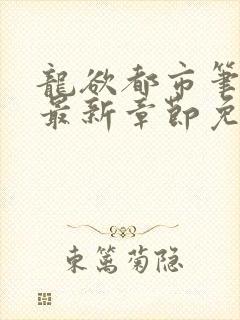 龍欲都市筆
最新章節免
東篱菊隐